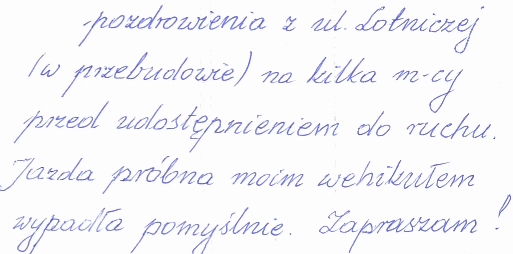 -pozdrowienia z ul. Lotniczej
(w przebudowie) na kilka m-cy
przed udostępnieniem do ruchu.
Jazda próbna moim wehikułem
wypadła pomyślnie. Zapraszam!